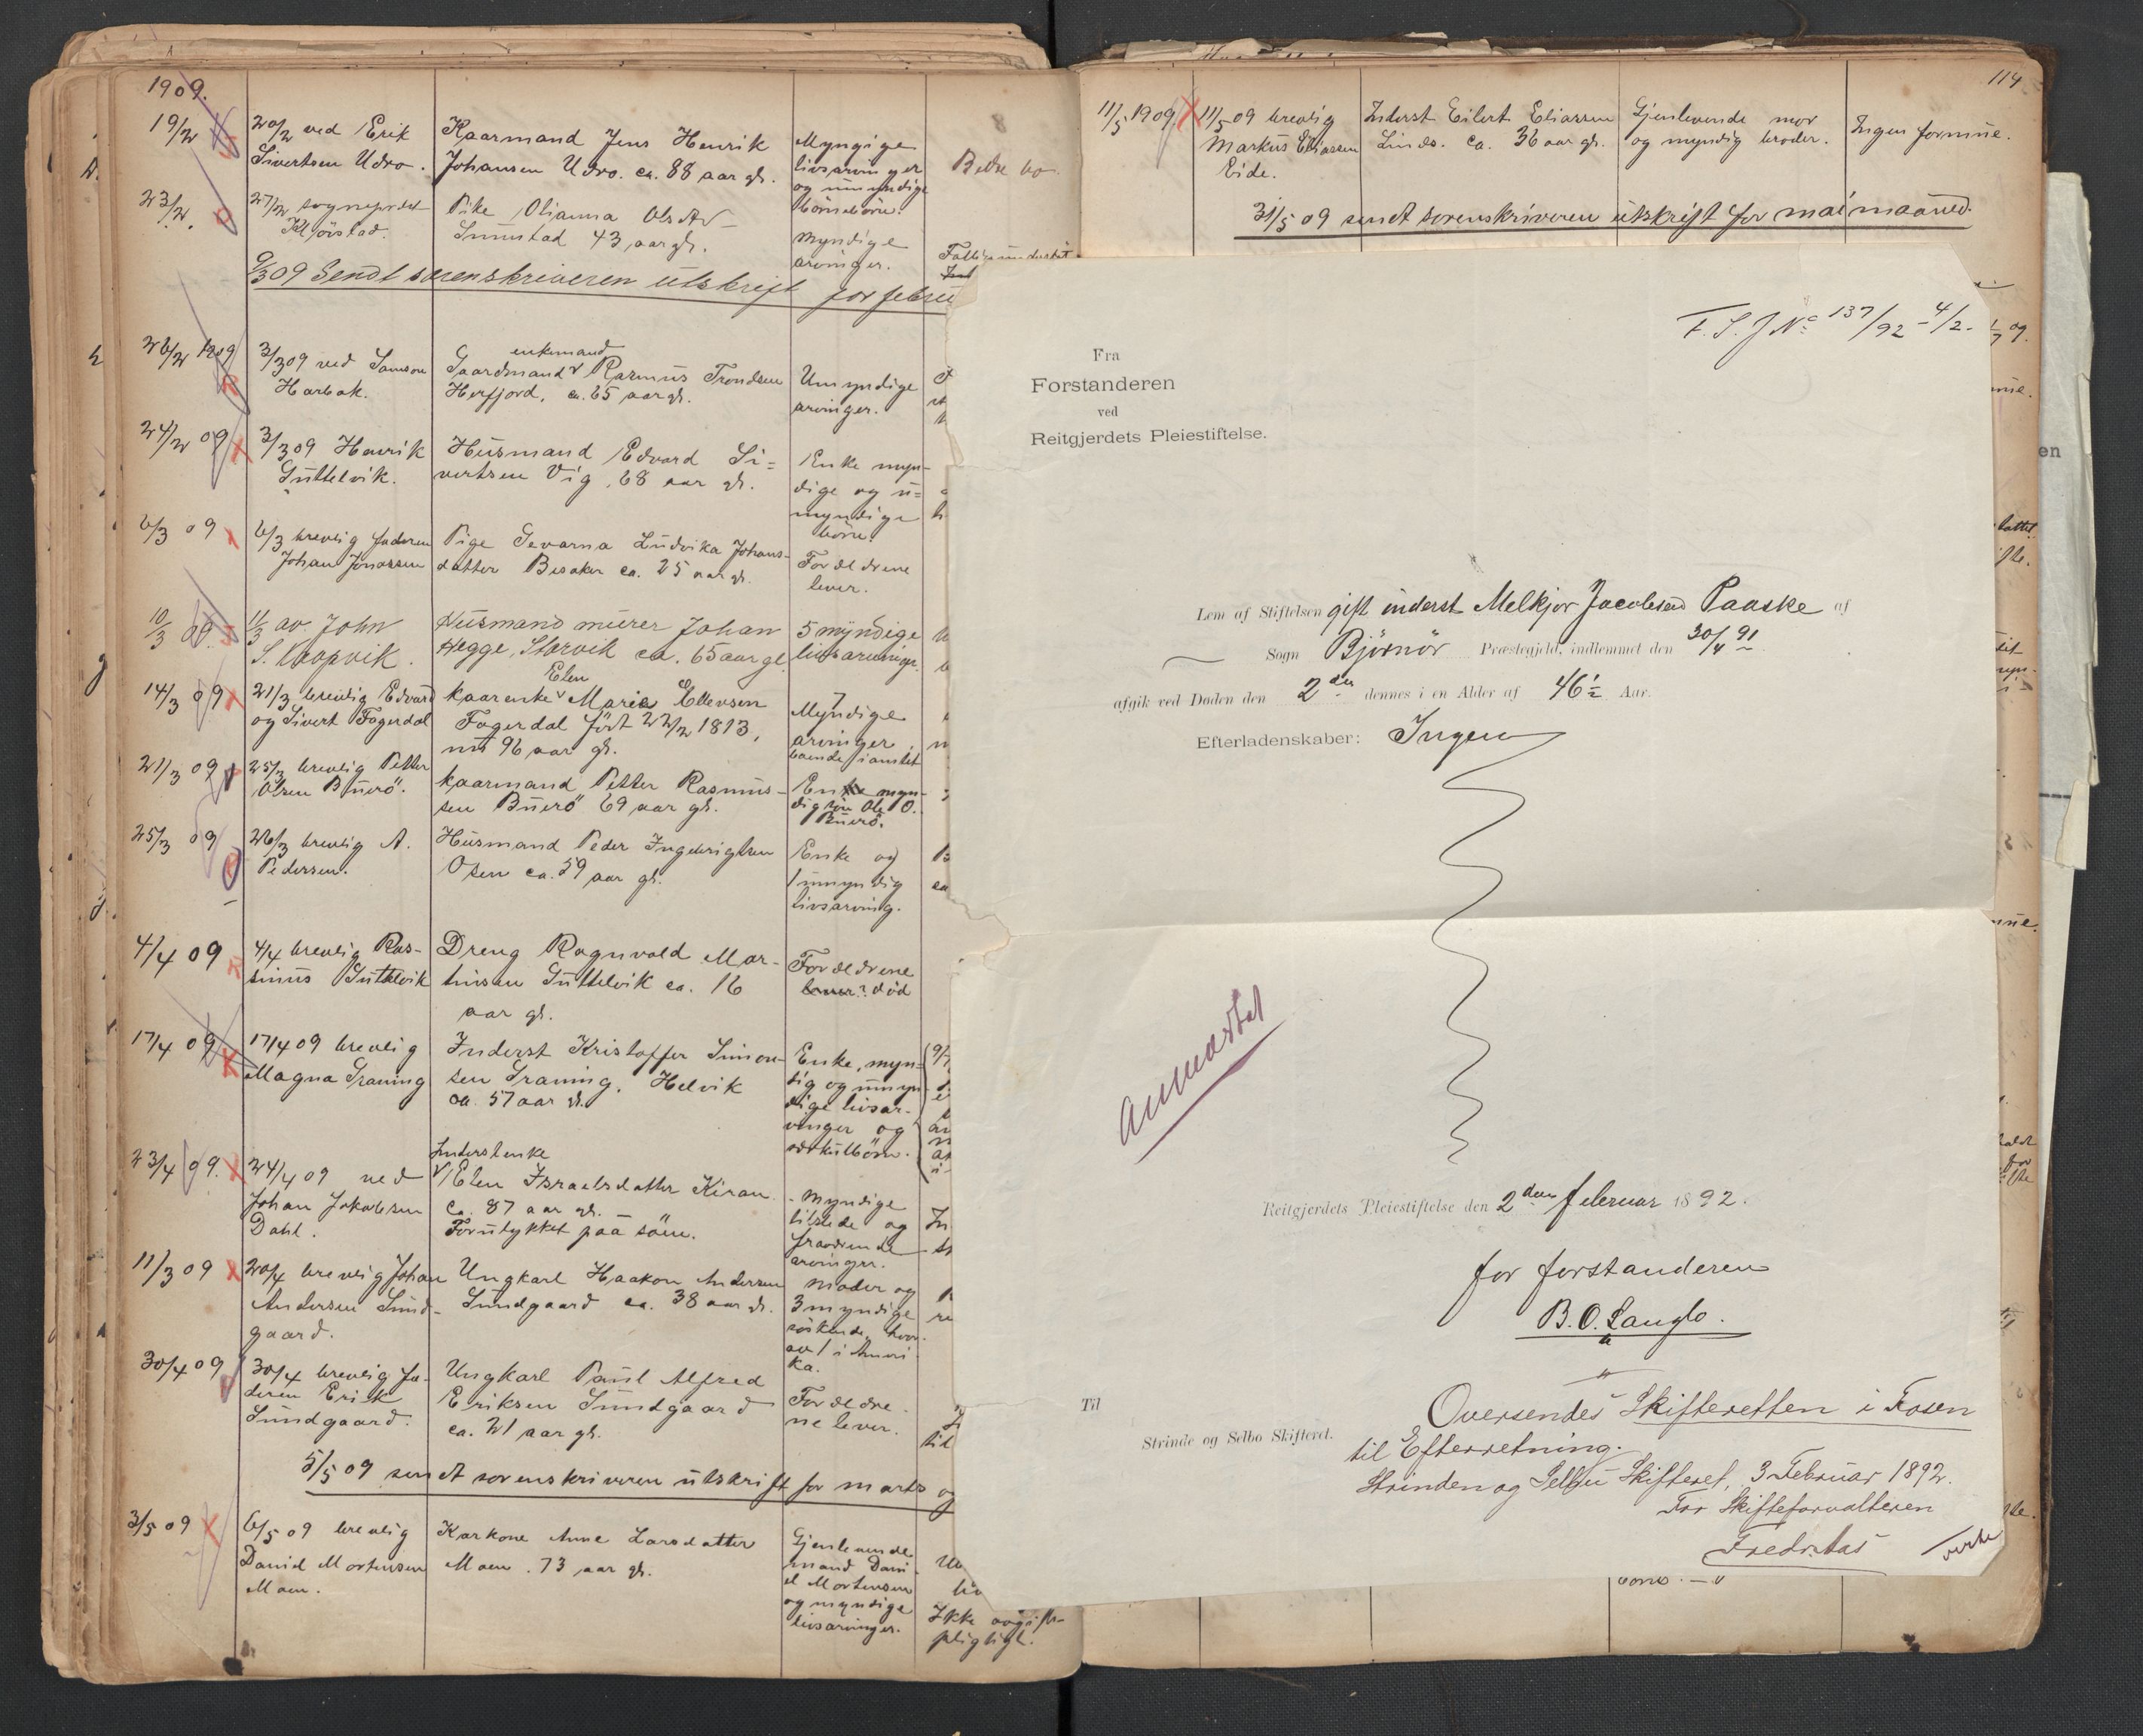 1909.
19/2
20/2 ved Erik
Sivertsen Udro.
Kaarmand Jens Henrik
Johansen Udro. ca. 88 aar gl.
Myngige
livsarvinger
og umyndige
börnebörn.
Bedre bo.
23/2.
27/2 sogneprest
Kljörstad.
Pike Olianna Olsdtr
Sumstad 43 aar gl.
Myndige
arvinger.
9/3 09 Sendt sorenskriveren utskrift for febru
26/2 1909
3/3 09 ved Samson
Harbak.
enkemand
Gaardmand Rasmus Trondsen
Herfjord, ca. 65 aar gl.
Umyndige
arvinger.
24/2 09
3/3 09 Henrik
Suttelvik.
Husmand Edvard Si=
vertsen Vig, 68 aar gl.
Enke myn-
dige og u=
myndige
börn.
6/3 09
6/3 brevlig faderen
Johan Jonassen
Pige Gevarna Ludvika Johans-
datter Besaker ca. 25 aar gl.
Forældrene
lever.
10/3 09.
11/3 av John
S.
Husmand murer Johan
Hegge, Storvik ca. 65 aar gl.
5 myndige
livsarvinger.
14/3 09
21/3 brevlig Edvard
og Sivert Fagerdal
Elen
kaarenke Maria Ellevsen
Fagerdal fört 22/2 1813,
nu 96 aar gl.
7
Myndige
arvinger,
boende i amtet
21/3 09
25/3 brevlig Petter
Olsen Buerö.
kaarmand Petter Rasmus-
sen Buerö 69 aar gl.
Enke myn-
dig sön Ole O.
Buerö.
25/3 09
26/3 brevlig A.
Pedersen.
Husmand Peder Ingebrigtsen
Osen ca. 59 aar gl.
Enke og
1 umyndig
livsarving.
4/4 09
4/4 brevlig Ras-
mus Suttelvik
Dreng Ragnvald Mar-
tinsen Suttelvik ca. 16
aar gl.
Forældrene
lever? död
17/4 09
17/4 09 brevlig
Magna Graning
Inderst Kristoffer Simon-
sen Graning, Helvik
ca. 57 aar gl.
Enke, myn=
dig og umyn-
dige livsar-
vinger og
særkulbörn.
23/4 09.
24/4 09 ved
Johan Jakobsen
Dahl.
Inderstenke
Elen Israelsdatter Kiran
ca. 87 aar gl.
Forulykket paa söen.
Myndige
tilstede og
fraværende
arvinger.
11/3 09
20/4 brevlig Johan
Andersen Sund-
gaard.
Ungkarl Haakon Andersen
Sundgaard ca. 38 aar gl.
Moder og
3 myndige
söskende, hvor-
av 1 i Ameri-
ka.
30/4 09
30/4 brevlig fa-
deren Erik
Sundgaard.
Ungkarl Paul Alfred
Eriksen Sundgaard
ca. 21 aar gl.
Forældre-
ne lever.
5/5 09 sendt sorenskriveren utskrift for marts og
3/5 09
6/5 09 brevlig
David Mortensen
Moen.
Karkone Anne Larsdatter
Moen. 73 aar gl.
Gjenlevende
mand Dani-
el Mortensen
og myndige
livsarvinger.
Ikke avgifts-
pligtigt.
114
11/5 1909
11/5 09 brevlig
Markus Eliassen
Eide.
Inderst Eilert Eliassen
Linds. ca. 36 aar gl.
Gjenlevende mor
og myndig broder.
Ingen formue.
31/5 09 sendt sorenskriveren utskrift for mai maaned.
F. S. J No 137/92 - 4/2-
Fra
Forstanderen
ved
Reitgjerdets Pleiestiftelse.
Lem af Stiftelsen gift inderst Melkjor Jacobsen Paaske af
Sogn Björnör Præstegjeld, indlemmet den 30/4 91
afgik ved Døden den 2den dennes i en Alder af 46½ Aar.
Efterladenskaber: Ingen
anmærket
Reitgjerdets Pleiestiftelse den 2den februar 1892.
for forstanderen
B. O. Langlo.
Til
Strinde og Selbo Skifteret.
Oversendes Skifteretten i Fosen
til Efterretning.
Strinden og Selbu Skifteret, 3 Februar 1892.
For Skifteforvalteren
Fredr. Aas